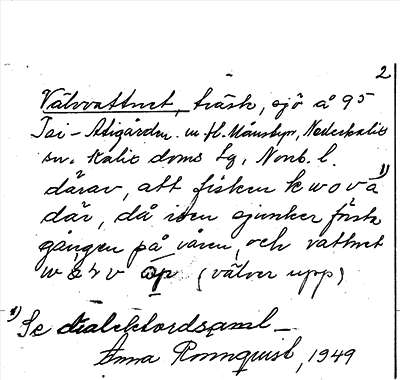 2
Välvvattnet, träsk, sjö å 95
Tai-Atigården m fl. Månsbyn, Nederkalix
sn. Kalix doms lg, Norrb. l.
därav, att fisken kwova 1)
där, då isen sjunker första
gången på våren, och vattnet
wärv öp (välver upp)
1) Se dialektordsaml
Anna Rönnquist, 1949